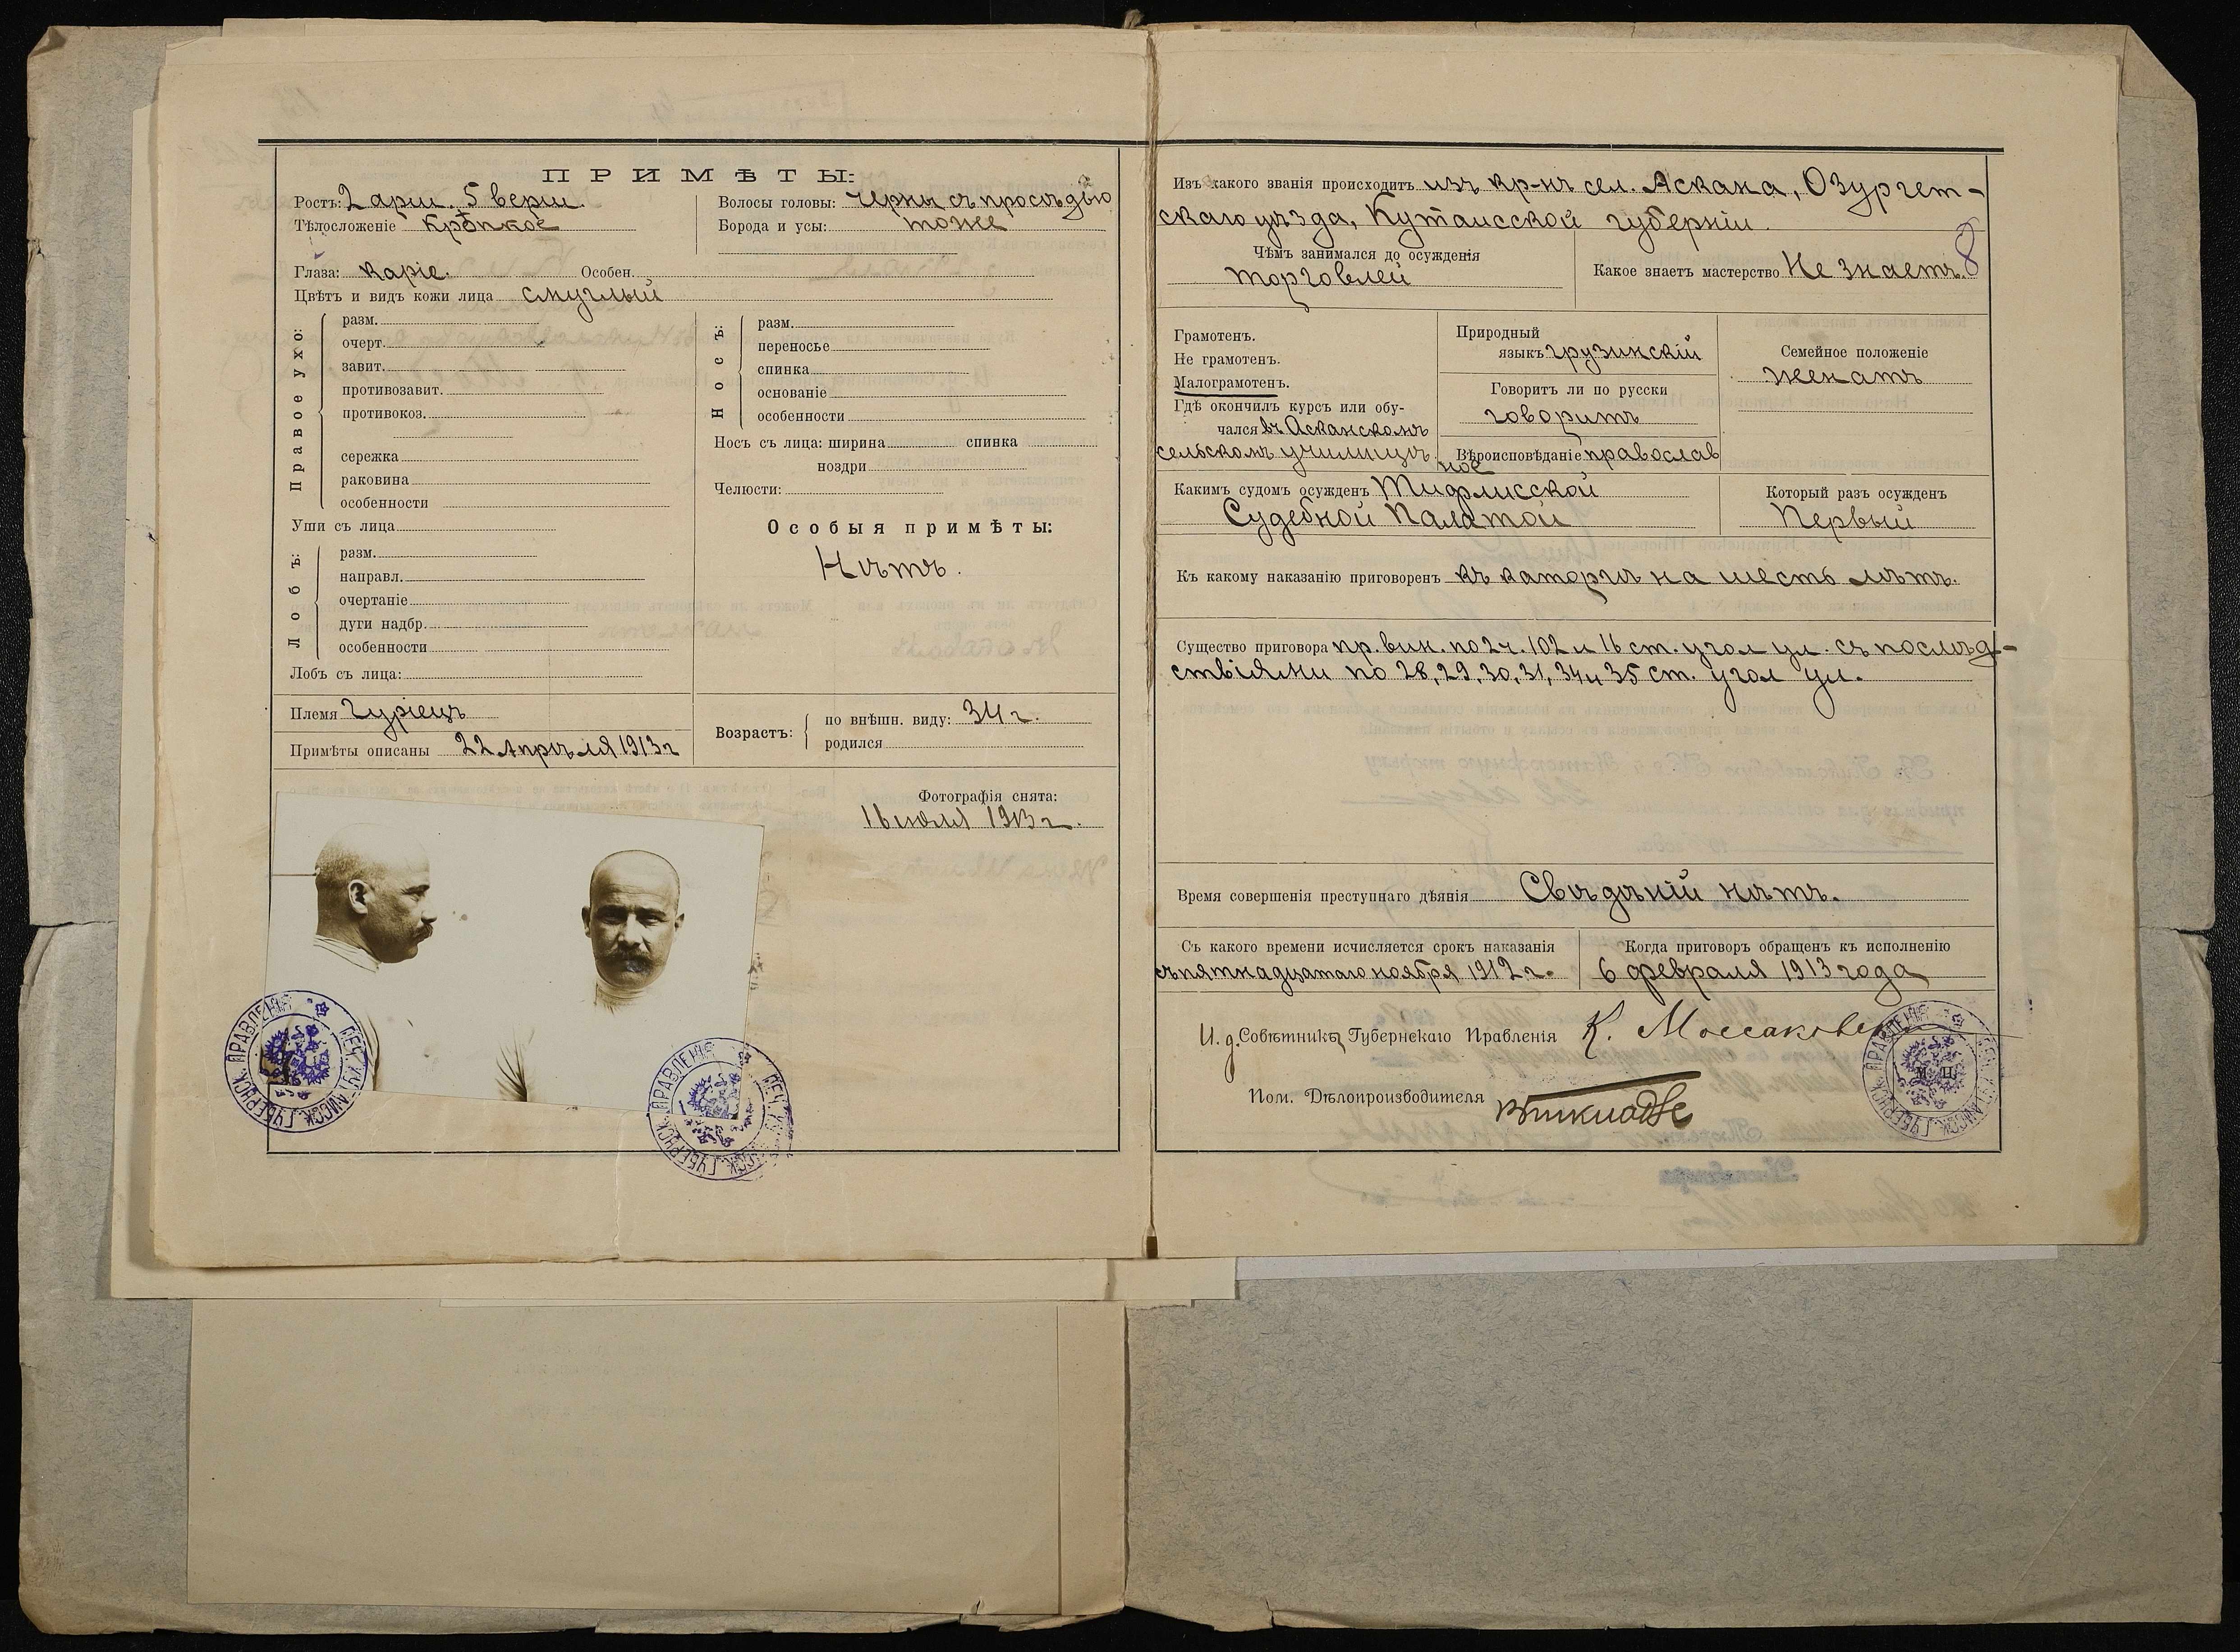 ПРИМѢТЫ:
Ростъ: 2 арш. 5 верш.
Тѣлосложеніе крѣпкое
Глаза: каріе. Особен.
Цвѣтъ и видъ кожи лица смуглый
Волосы головы: черны съ просѣдью
Борода и усы: тоже
Правое ухо:
разм.
очерт.
завит.
противозавит.
противокоз.
сережка
раковина
особенности
Уши съ лица
Лобъ:
разм.
направл.
очертаніе
дуги надбр.
особенности
Лобъ съ лица:
Носъ:
разм.
переносье
спинка
основаніе
особенности
Носъ съ лица: ширина спинка
ноздри
Челюсти:
Особыя примѣты:
Нѣтъ.
Племя гуріецъ
Примѣты описаны 22 Апрѣля 1913 г
Возрастъ:
по внѣшн. виду: 34 г.
родился
Фотографія снята:
16 іюля 1913 г.
ПЕЧ. КУТАИССК. ГУБЕРНСК. ПРАВЛЕНІЯ
ПЕЧ. КУТАИССК. ГУБЕРНСК. ПРАВЛЕНІЯ
Изъ какого званія происходитъ изъ кр-нъ сел. Аскана, Озургет-
скаго уѣзда, Кутаисской губерніи.
8
Чѣмъ занимался до осужденія
торговлей
Какое знаетъ мастерство Не знаетъ.
Грамотенъ.
Не грамотенъ.
Малограмотенъ.
Гдѣ окончилъ курсъ или обу-
чался въ Асканскомъ
сельскомъ училищѣ.
Природный
языкъ грузинскій
Говоритъ ли по русски
говоритъ
Вѣроисповѣданіе православ
ное
Семейное положеніе
женатъ
Какимъ судомъ осужденъ Тифлисской
Судебной Палатой
Который разъ осужденъ
Первый
Къ какому наказанію приговоренъ къ каторгѣ на шесть лѣтъ.
Существо приговора пр. вин. по 2 ч. 102 и 16 ст. угол ул. съ послѣд-
ствіями по 28, 29, 30, 31, 34 и 35 ст. угол ул.
Время совершенія преступнаго дѣянія Свѣдѣній нѣтъ.
Съ какого времени исчисляется срокъ наказанія
съ пятнадцатаго ноября 1912 г.
Когда приговоръ обращенъ къ исполненію
6 февраля 1913 года
И. д. Совѣтника Губернскаго Правленія К.
Пом. Дѣлопроизводителя
М. П.
ПЕЧ. КУТАИССК. ГУБЕРНСК. ПРАВЛЕНІЯ